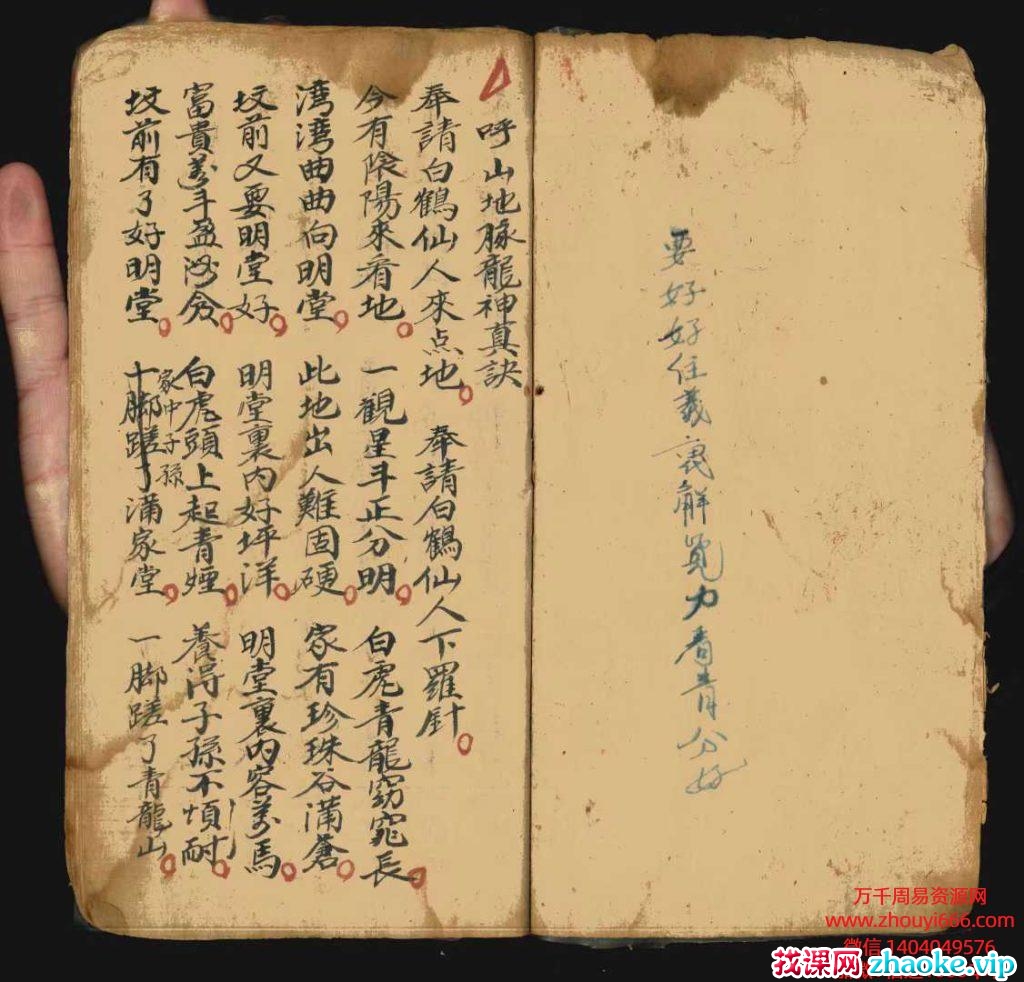 要好好住義裏解覺力看青分好
呼山地脉龍神真訣
奉請白鶴仙人來点地 奉請白鶴仙人下羅針
今有陰陽來看地 一觀星斗正分明 白虎青龍窈窕長
湾湾曲曲向明堂 此地出人難固硬 家有珍珠谷满蒼
坟前又要明堂好 明堂裏内好坪洋 明堂裏内容萬馬
富貴萬斗盈 白虎頭上起青煙 養淂子孫不煩耐
坟前有了好明堂 家中子孫满家堂 一脚蹉了青龍山
十脚蹉了
万千周易资源网
www.zhouyi666.com
微信 1404049576
找课网 zhaoke.vip